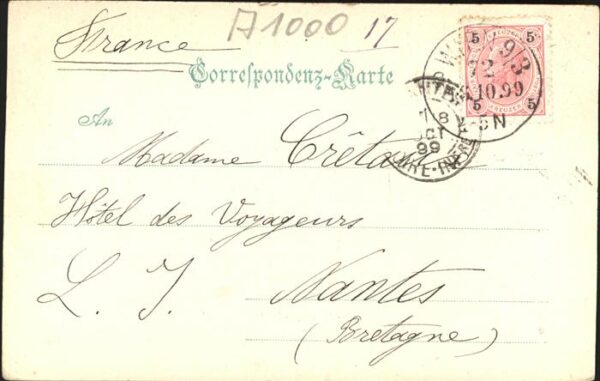 A1000
17
France
Correspondenz-Karte
5 5
9/3
10.99
5 5
8
OCT
99
LOIRE-INFRE
An
Madame Crétaux
Hôtel des Voyageurs
L. I. Nantes
(Bretagne)